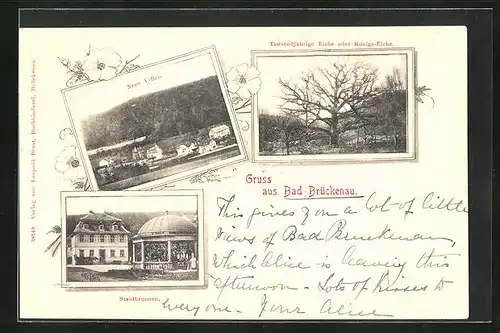 Tausendjährige Eiche oder Königs-Eiche.
Neue Villen
Gruss
aus Bad Brückenau.
Stahlbrunnen.
Verlag von Leopold Brust, Buchbinderei, Brückenau
This gives you a lot of little
views of Bad Bruckenau,
which Alice is leaving this
afternoon - Lots of kisses to
everyone - Your Alice